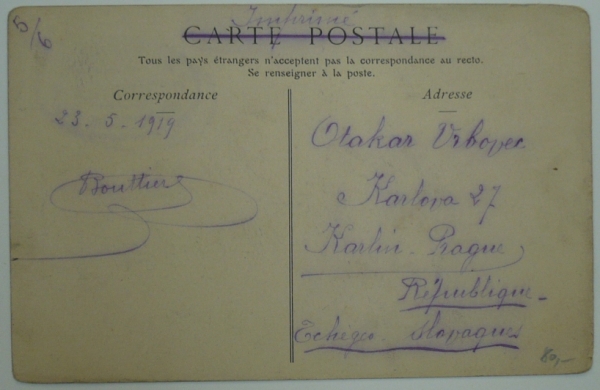 5/6
Imprimé
CARTE POSTALE
Tous les pays étrangers n'acceptent pas la correspondance au recto.
Se renseigner à la poste.
Correspondance
Adresse
23.5.1919
Bouttier
Otakar Vrbovec
Karlova 27
Karlin. Prague
République
Tchéco. Slovaque
80,-